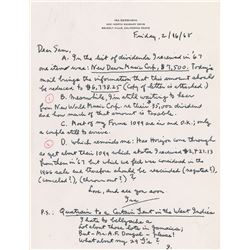 IRA GERSHWIN
1021 NORTH ROXBURY DRIVE
BEVERLY HILLS, CALIFORNIA 90210
Friday, 2/16/68
Dear Sam,
A. In the list of dividends I received in '67
one item was: New Dawn Music Corp., $7,500. Today's
mail brings the information that this amount should
be reduced to $6,738.25 (copy of letter is attached)
B. Meanwhile, I'm still waiting to hear
from New World Music Corp. re their $35,000 dividend
and how much of that amount is taxable.
C. Most of my Forms 1099 are in and O.K.; only
a couple still to arrive.
D. Which reminds me: Has Horizon come through
as yet about their 1099 which states I received $2,721.13
from them in '67 but which we feel was considered in the
1966 sale and therefore should be rescinded (negated?),
(cancelled?), (thrown out?) ?
Love, and see you soon
Ira
P.S.: Quatrain to a Certain Giant in the West Indies
I hate to bellyache to
Lot about those lots in Jamaica;
But - Mr. A.P. Dougal - I mean!
What about my 29 3/4% ?